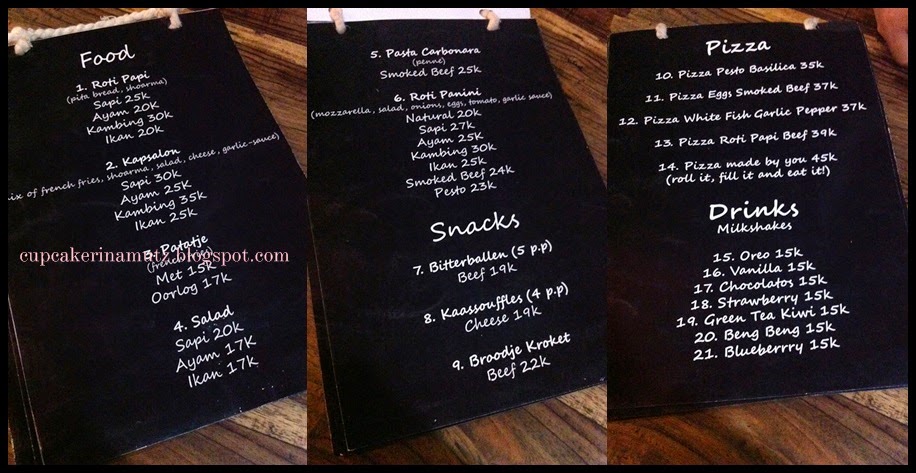 Food
1. Roti Papi
(pita bread, shoarma)
Sapi 25k
Ayam 20k
Kambing 30k
Ikan 20k
2. Kapsalon
mix of french fries, shoarma, salad, cheese, garlic-sauce)
Sapi 30k
Ayam 25k
Kambing 35k
Ikan 25k
3. Patatje
(french fries)
Met 15k
Oorlog 17k
4. Salad
Sapi 20k
Ayam 17k
Ikan 17k
cupcakerinamutz.blogspot.com
5. Pasta Carbonara
(penne)
Smoked Beef 25k
6. Roti Panini
(mozzarella, salad, onions, eggs, tomato, garlic sauce)
Natural 20k
Sapi 27k
Ayam 25k
Kambing 30k
Ikan 25k
Smoked Beef 24k
Pesto 23k
Snacks
7. Bitterballen (5 p.p)
Beef 19k
8. Kaassouffles (4 p.p)
Cheese 19k
9. Broodje Kroket
Beef 22k
Pizza
10. Pizza Pesto Basilica 35k
11. Pizza Eggs Smoked Beef 37k
12. Pizza White Fish Garlic Pepper 37k
13. Pizza Roti Papi Beef 39k
14. Pizza made by you 45k
(roll it, fill it and eat it!)
Drinks
Milkshakes
15. Oreo 15k
16. Vanilla 15k
17. Chocolatos 15k
18. Strawberry 15k
19. Green Tea Kiwi 15k
20. Beng Beng 15k
21. Blueberrry 15k